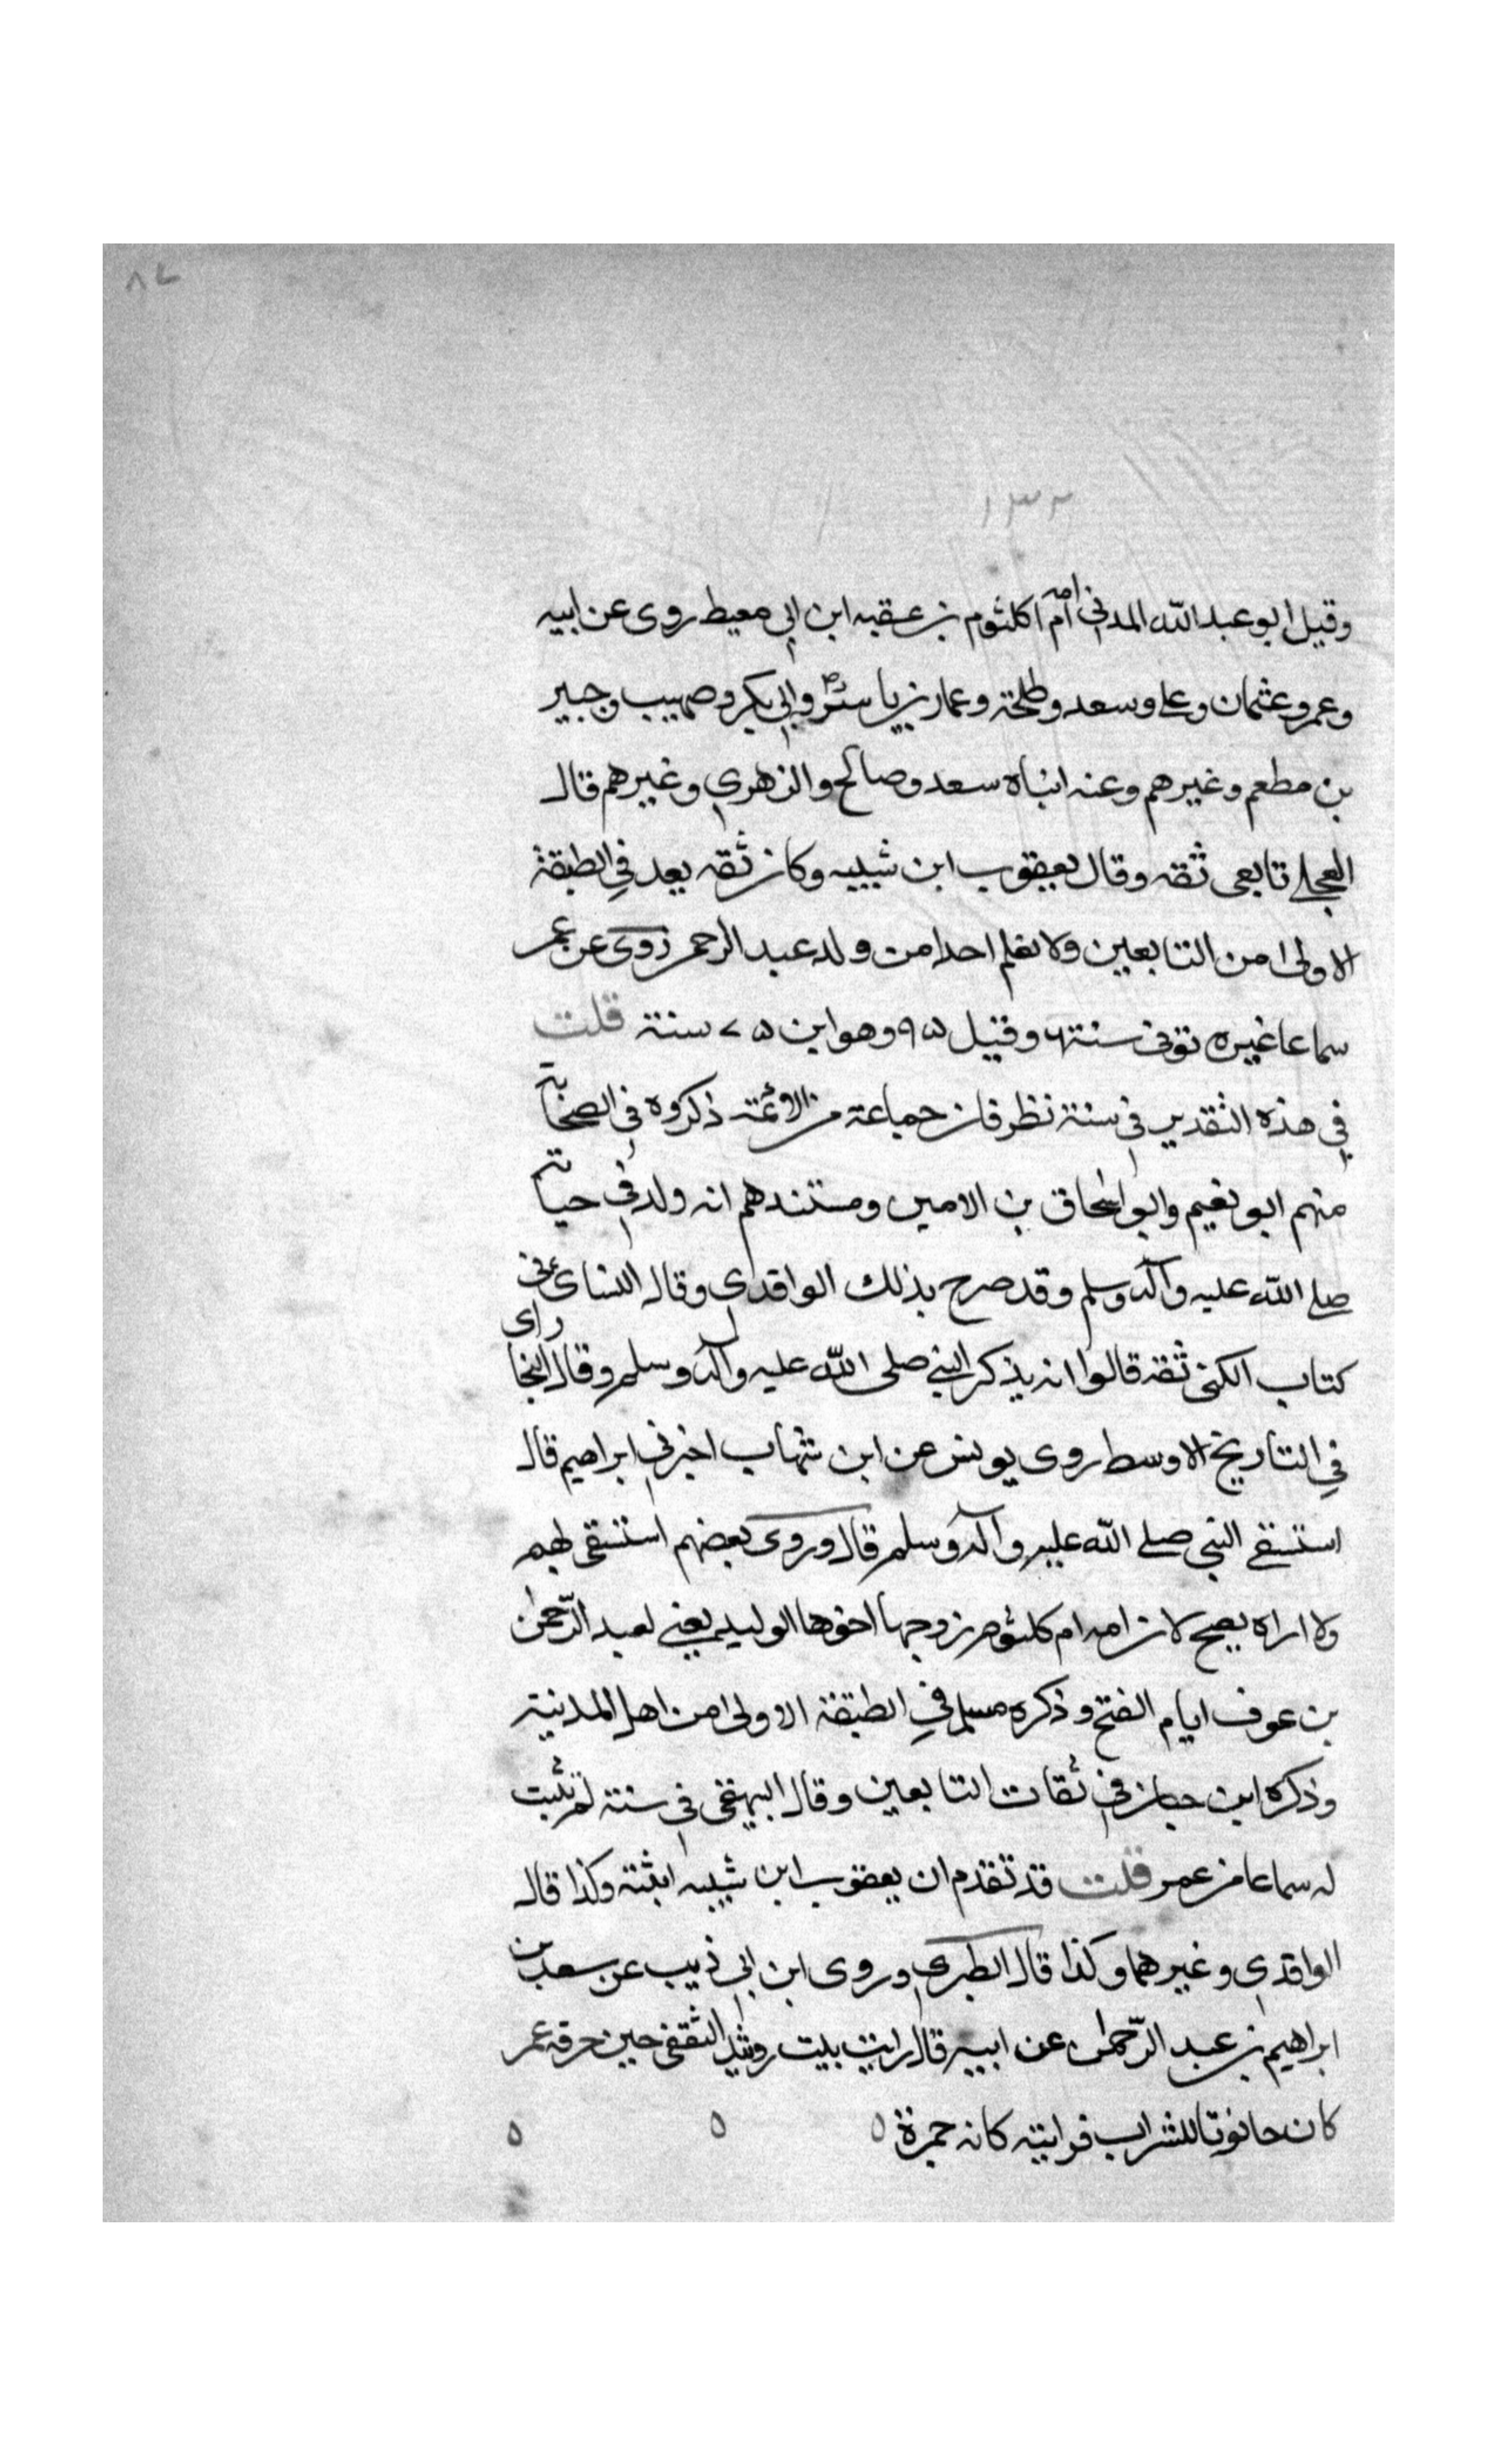 ٨٧
١٣٢
وقيل ابو عبد الله المدني امه ام كلثوم بن عقبه ابن ابي معيط روى عن ابيه
وعمر وعثمان وعلي وسعد وطلحة وعمار بن ياسر وابي بكر وصهيب وجبير
بن مطعم وغيرهم وعنه ابناه سعد وصالح والزهري وغيرهم قال
العجلي تابعي ثقه وقال يعقوب ابن شيبه وكان ثقه يعد في الطبقة
الاولى من التابعين ولا نعلم احدا من ولد عبد الرحمن روى عن عمر
سماعا غيره توفي سنة وقيل ٩٥ وهو ابن ٧٥ سنة قلت
في هذه التقدير في سنة نظر فان جماعة من الائمة ذكروه في الصحابة
منهم ابو نعيم وابو اسحاق بن الامين ومستندهم انه ولد في حياته
صلى الله عليه وآله وسلم وقد صرح بذلك الواقدي وقال النسائي في
كتاب الكنى ثقه قالوا انه يذكر النبي صلى الله عليه وآله وسلم وقال البخاري
في التاريخ الاوسط روى يونس عن ابن شهاب اخبرني ابراهيم قال
استسقى النبي صلى الله عليه وآله وسلم قال وروى بعضهم استسقى لهم
ولا اراه يصح لان امه ام كلثوم زوجها اخوها الوليد يعني لعبد الرحمن
بن عوف ايام الفتح وذكره مسلم في الطبقة الاولى من اهل المدينة
وذكره ابن حبان في ثقات التابعين وقال البيهقي في سننه لم يثبت
له سماعا من عمر قلت قد تقدم ان يعقوب ابن شيبه اثبته وكذا قال
الواقدي وغيرهما وكذا قال الطبري وروى ابن ابي ذيب عن سعد بن
ابراهيم بن عبد الرحمن عن ابيه قال رايت بيت رويشد الثقفي حين حرقه عمر
كان حانوتا للشراب فرايته كانه جمرة ٥ ٥ ٥